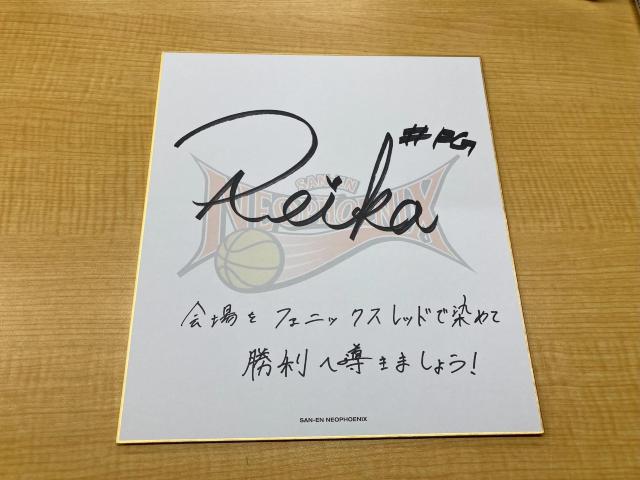 #PG
Reika
SAN-EN
NEOPHOENIX
会場をフェニックスレッドで染めて
勝利へ導きましょう!
SAN-EN NEOPHOENIX